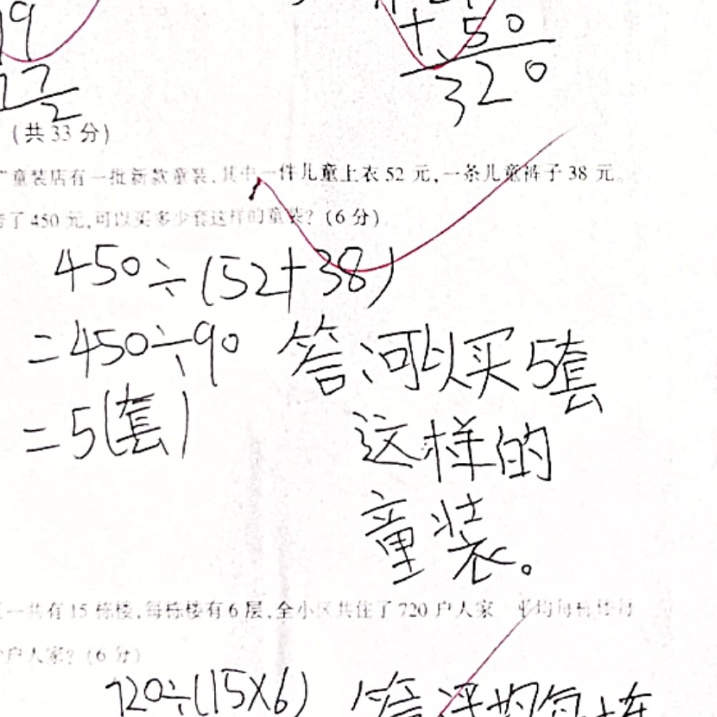 9
+ 50
17
2
320
(共33分)
童装店有一批新款童装,其中一件儿童上衣52元,一条儿童裤子38元。
了450元,可以买多少套这样的童装?(6分)
450÷(52+38)
=450÷90
=5(套)
答:可以买5套
这样的
童装。
一共有15栋楼,每栋楼有6层,全小区共住了720户人家
户人家?(6分)
720÷(15×6)
答:平均每